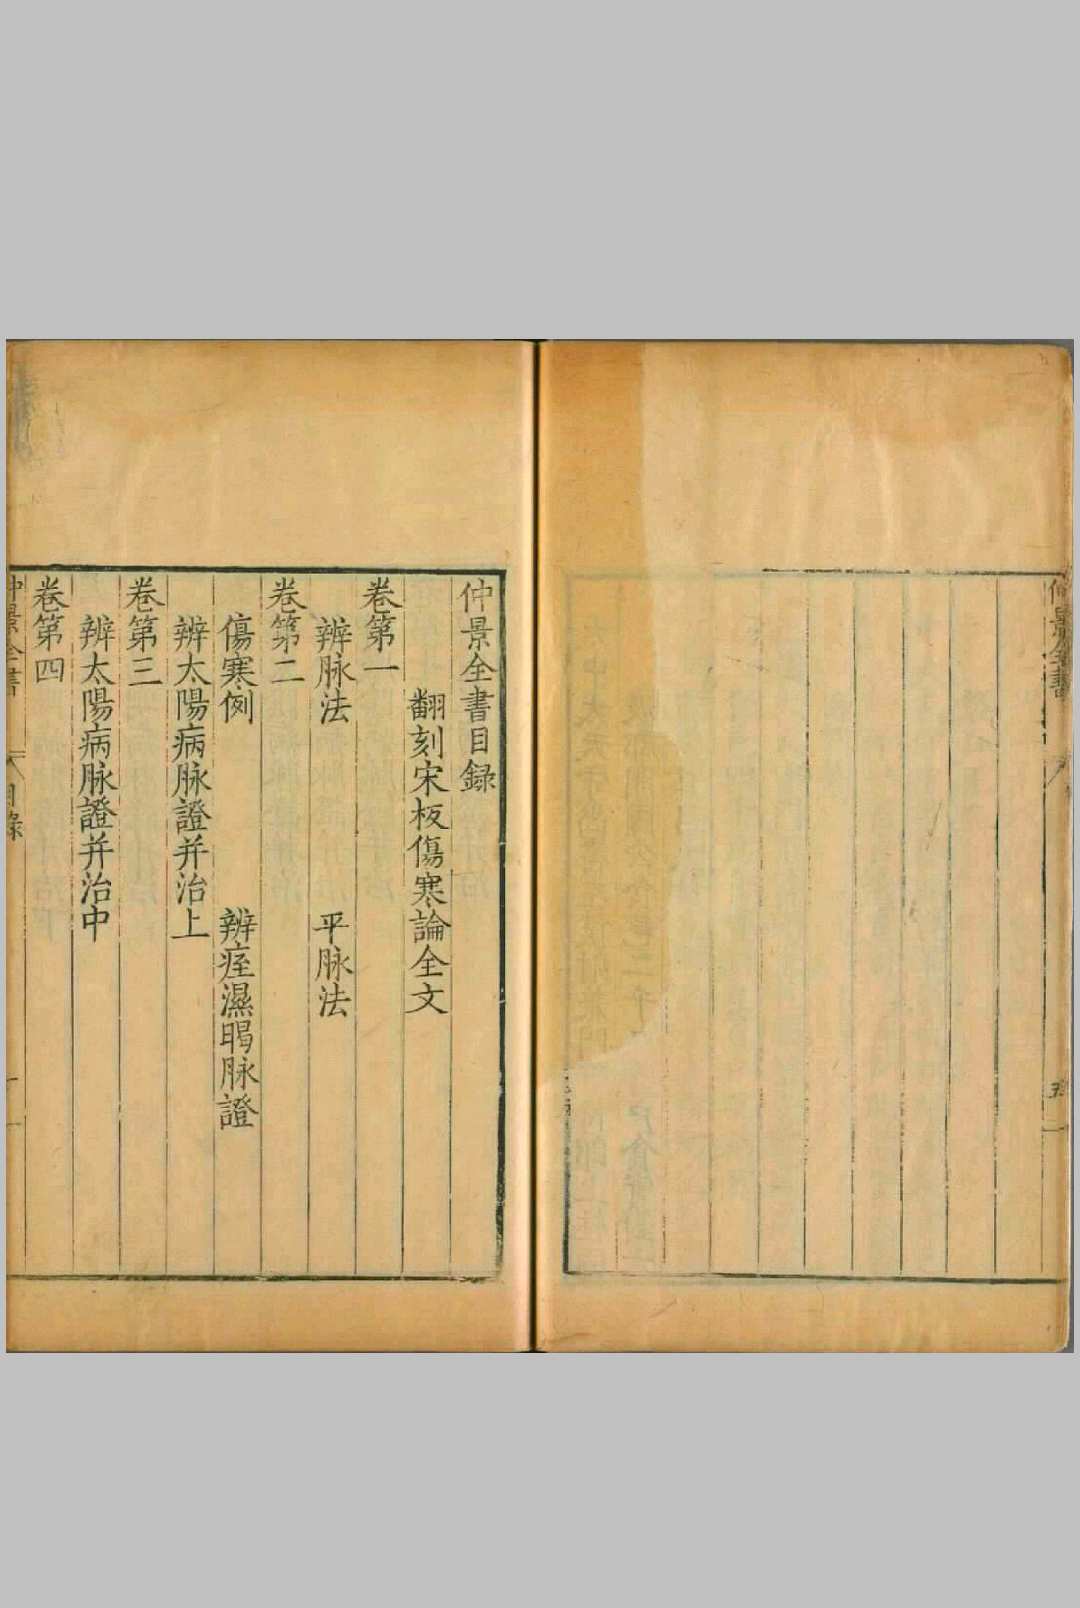 仲景全書
五
仲景全書目録
翻刻宋板傷寒論全文
卷第一
辨脉法　平脉法
卷第二
傷寒例　辨痓濕暍脉證
辨太陽病脉證并治上
卷第三
辨太陽病脉證并治中
卷第四
仲景全書　目錄　一